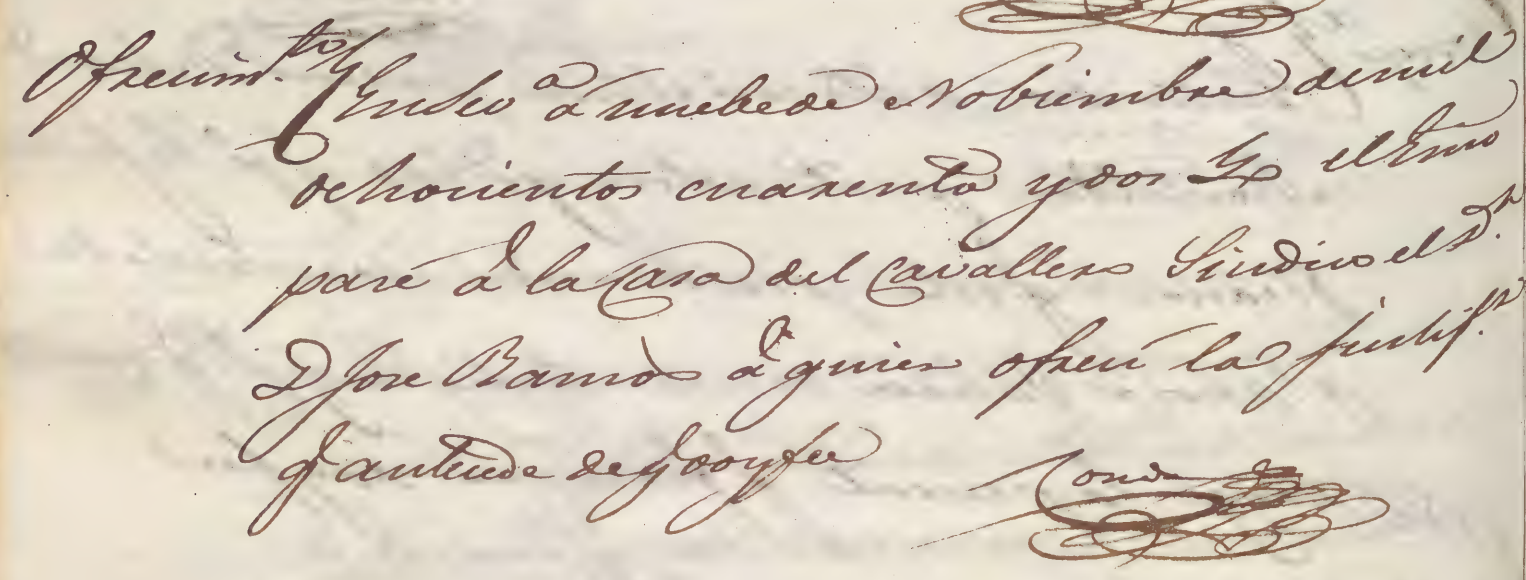 Ofrecimto En Sevª a nuebe de Nobiembre de mil
ochocientos cuarenta y dos Yo el Esno
pasé á la Casa del Cavallero Sindico el Sr.
D José Ramos á quien ofrecí la justifn.
q antecede de q doy fee
Conde